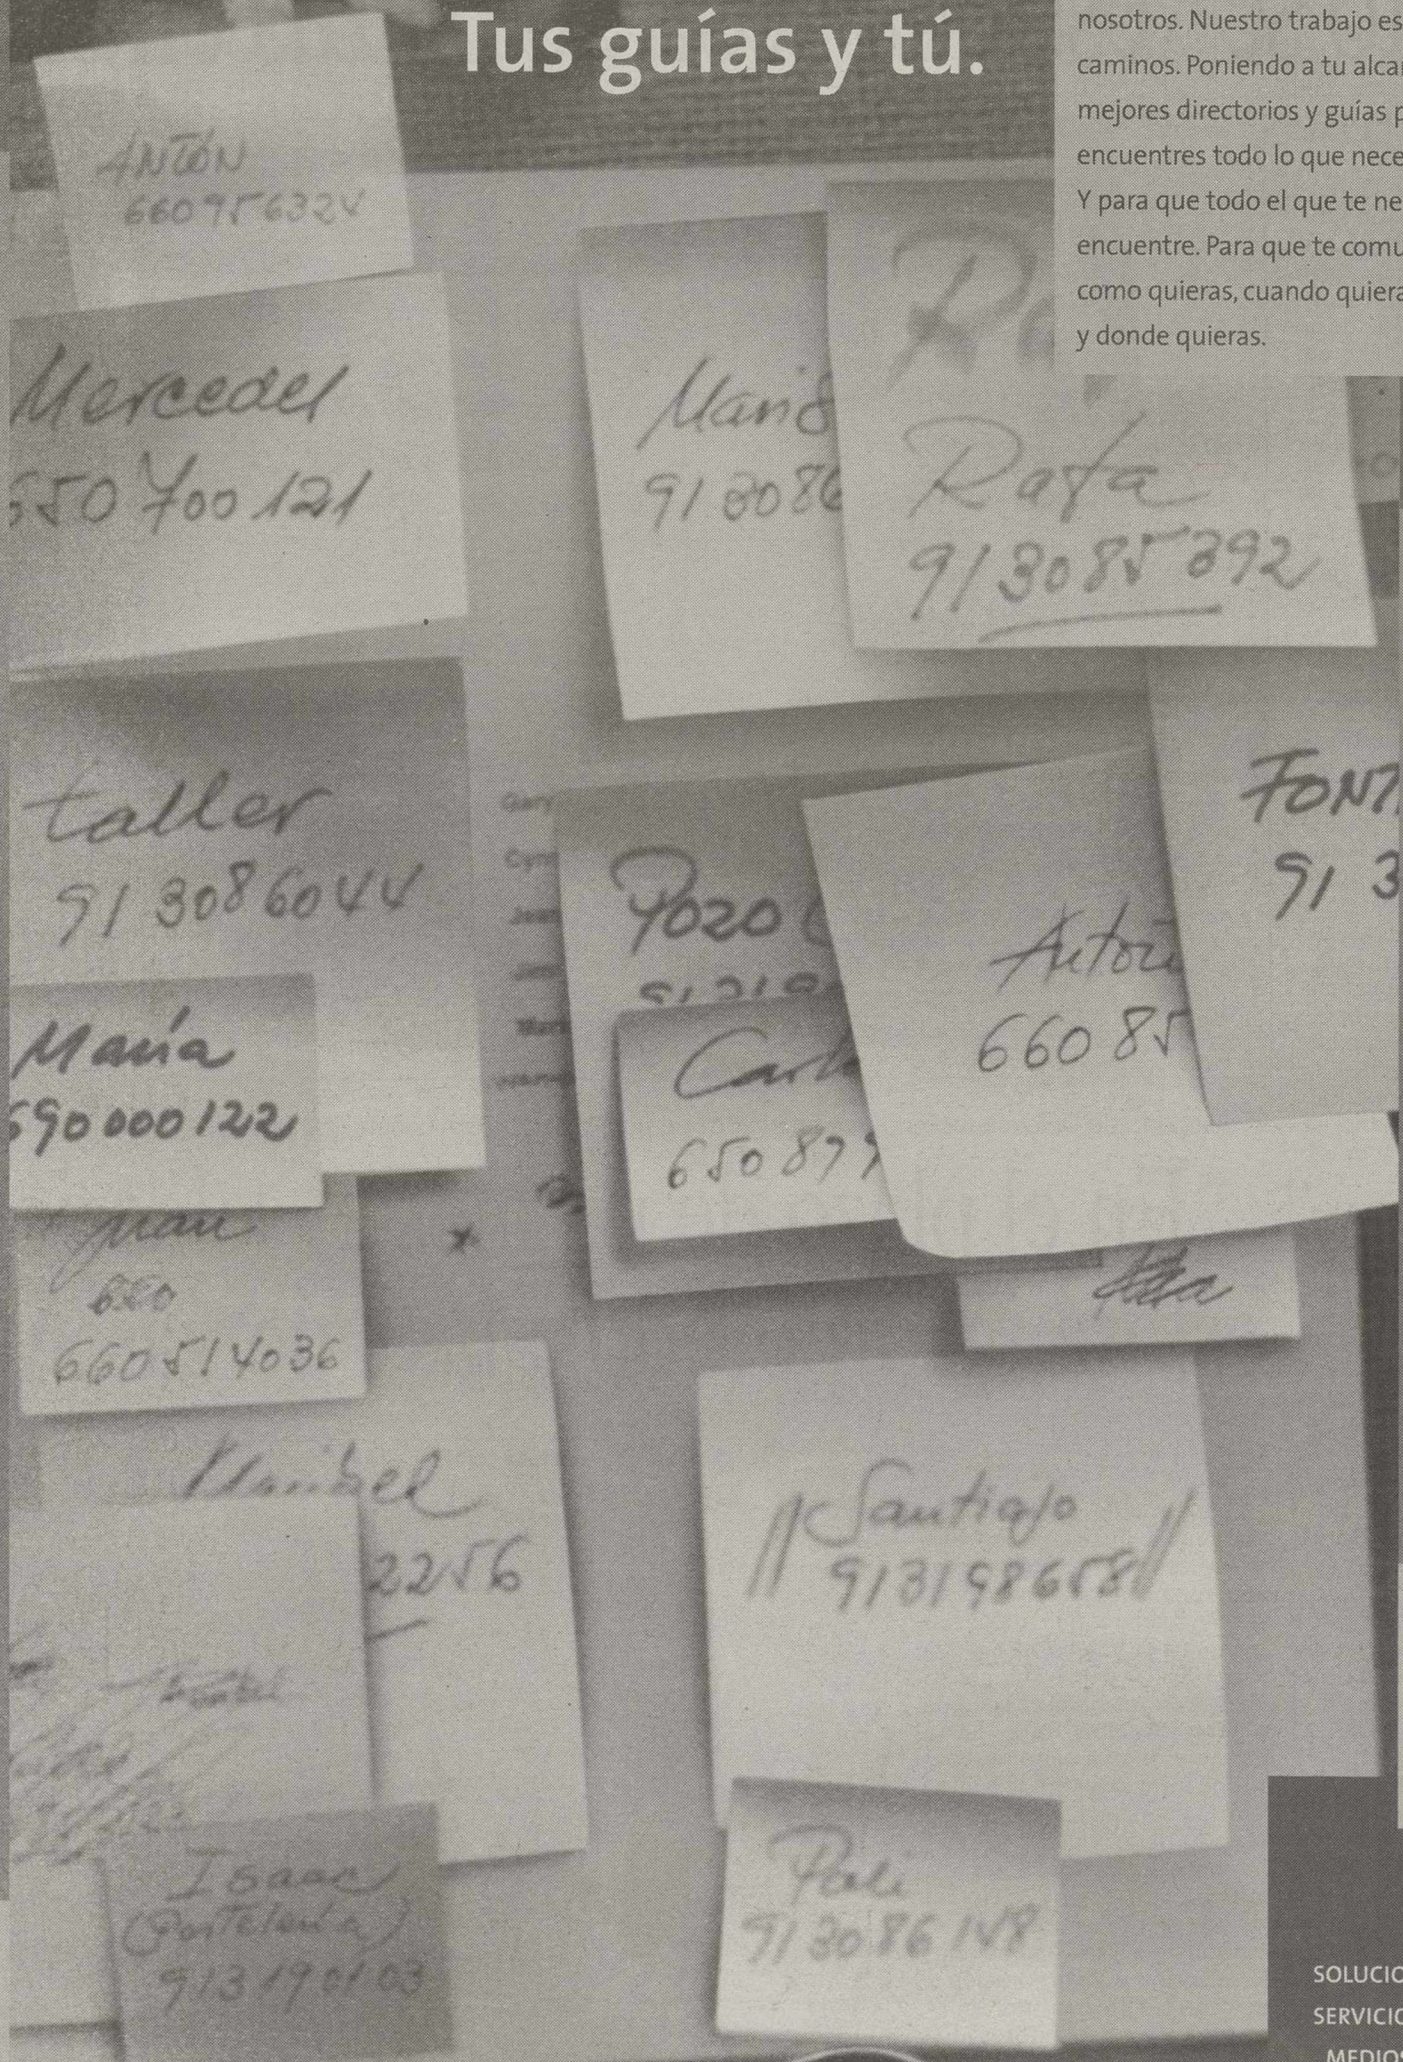 Tus guías y tú.
nosotros. Nuestro trabajo es
caminos. Poniendo a tu alca
mejores directorios y guías p
encuentres todo lo que nece
Y para que todo el que te ne
encuentre. Para que te comu
como quieras, cuando quiera
y donde quieras.
ANTÓN
660956324
Mercedes
650 700 121
913086
Rafa
913085392
taller
91 3086044
Pozo
FONT
91 3
66085
María
690000122
650 87
Juan
660514036
Maribel
2256
Santiago
913198658
Isaac
913190103
Pali
913086148
SOLUCIO
SERVICIO
MEDIOS